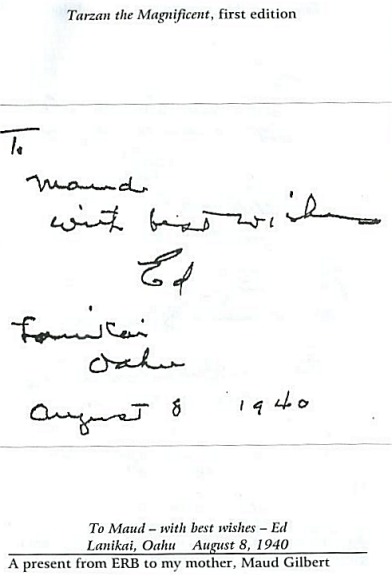 Tarzan the Magnificent, first edition
To
Maud
with best wishes
Ed
Lanikai
Oahu
August 8 1940
To Maud – with best wishes – Ed
Lanikai, Oahu August 8, 1940
A present from ERB to my mother, Maud Gilbert